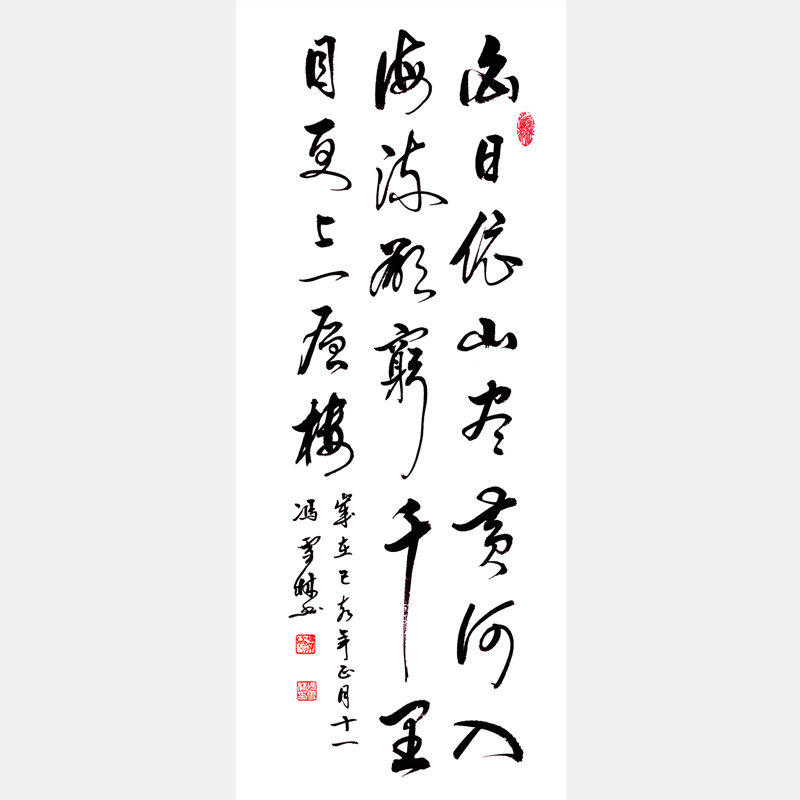 白日依山尽黄河入
海流欲窮千里
目更上一层樓
歲在己亥年正月十一
馮雪林书